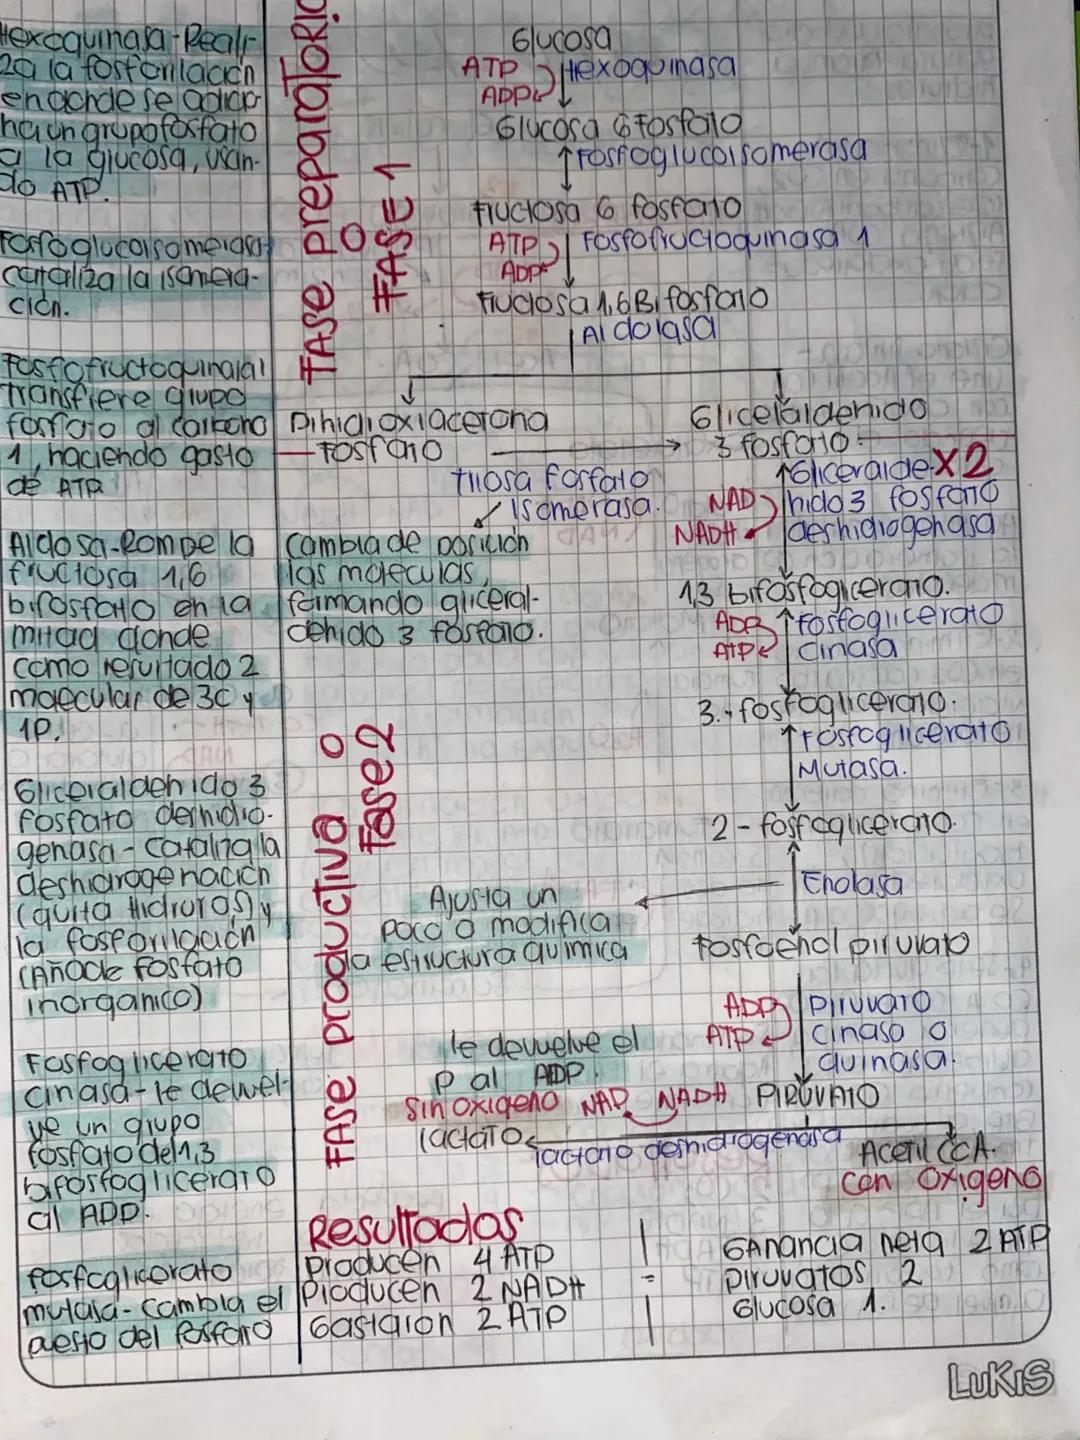 Hexoquinasa-Reali-
za la fosforilación
en donde se adicio
na un grupo fosfato
a la glucosa, usan-
do ATP.
Fosfoglucoisomerasa
cataliza la isomera-
ción.
Fosfofructoquinasa1
transfiere grupo
fosfato al carbono
1, haciendo gasto
de ATP
Aldosa-Rompe la
fructosa 1,6
bifosfato en la
mitad donde
como resultado 2
molecular de 3C y
1P.
Gliceraldehido 3
fosfato deshidro-
genasa-Cataliza la
deshidrogenación
(quita Hidruros) y
la fosforilación
(Añade fosfato
inorganico)
Fosfoglicerato
cinasa-le devuel-
ve un grupo
fosfato del 1,3
bifosfoglicerato
al ADP.
fosfoglicerato
mutasa-cambia el
puesto del fosfato
FASE preparatoria
O
FASE 1
Glucosa
ATP Hexoquinasa
ADP
Glucosa 6 fosfato
Fosfoglucoisomerasa
Fructosa 6 fosfato
ATP Fosfofructoquinasa 1
ADP
Fructosa 1,6 Bifosfato
Aldolasa
Dihidroxiacetona
fosfato
Gliceraldehido
3 fosfato.
triosa fosfato
isomerasa.
cambia de posición
las moleculas,
formando gliceral-
dehido 3 fosfato.
X2
Gliceralde-
NAD hido 3 fosfato
NADH deshidrogenasa
1,3 bifosfoglicerato.
ADP fosfoglicerato
ATP cinasa
3.-fosfoglicerato.
Fosfoglicerato
Mutasa.
2-fosfoglicerato.
FASE productiva o
Fase 2
Enolasa
Ajusta un
poco o modifica
la estructura quimica
fosfoenol piruvato
ADP Piruvato
ATP cinasa o
quinasa.
le devuelve el
P al ADP.
PIRUVATO
sin oxigeno NAD NADH
lactato
lactato deshidrogenasa
Acetil CoA.
con oxigeno
Resultados
Producen 4 ATP
Producen 2 NADH
Gastaron 2 ATP
=
GAnancia neta 2 ATP
piruvatos 2
Glucosa 1.
LuKiS